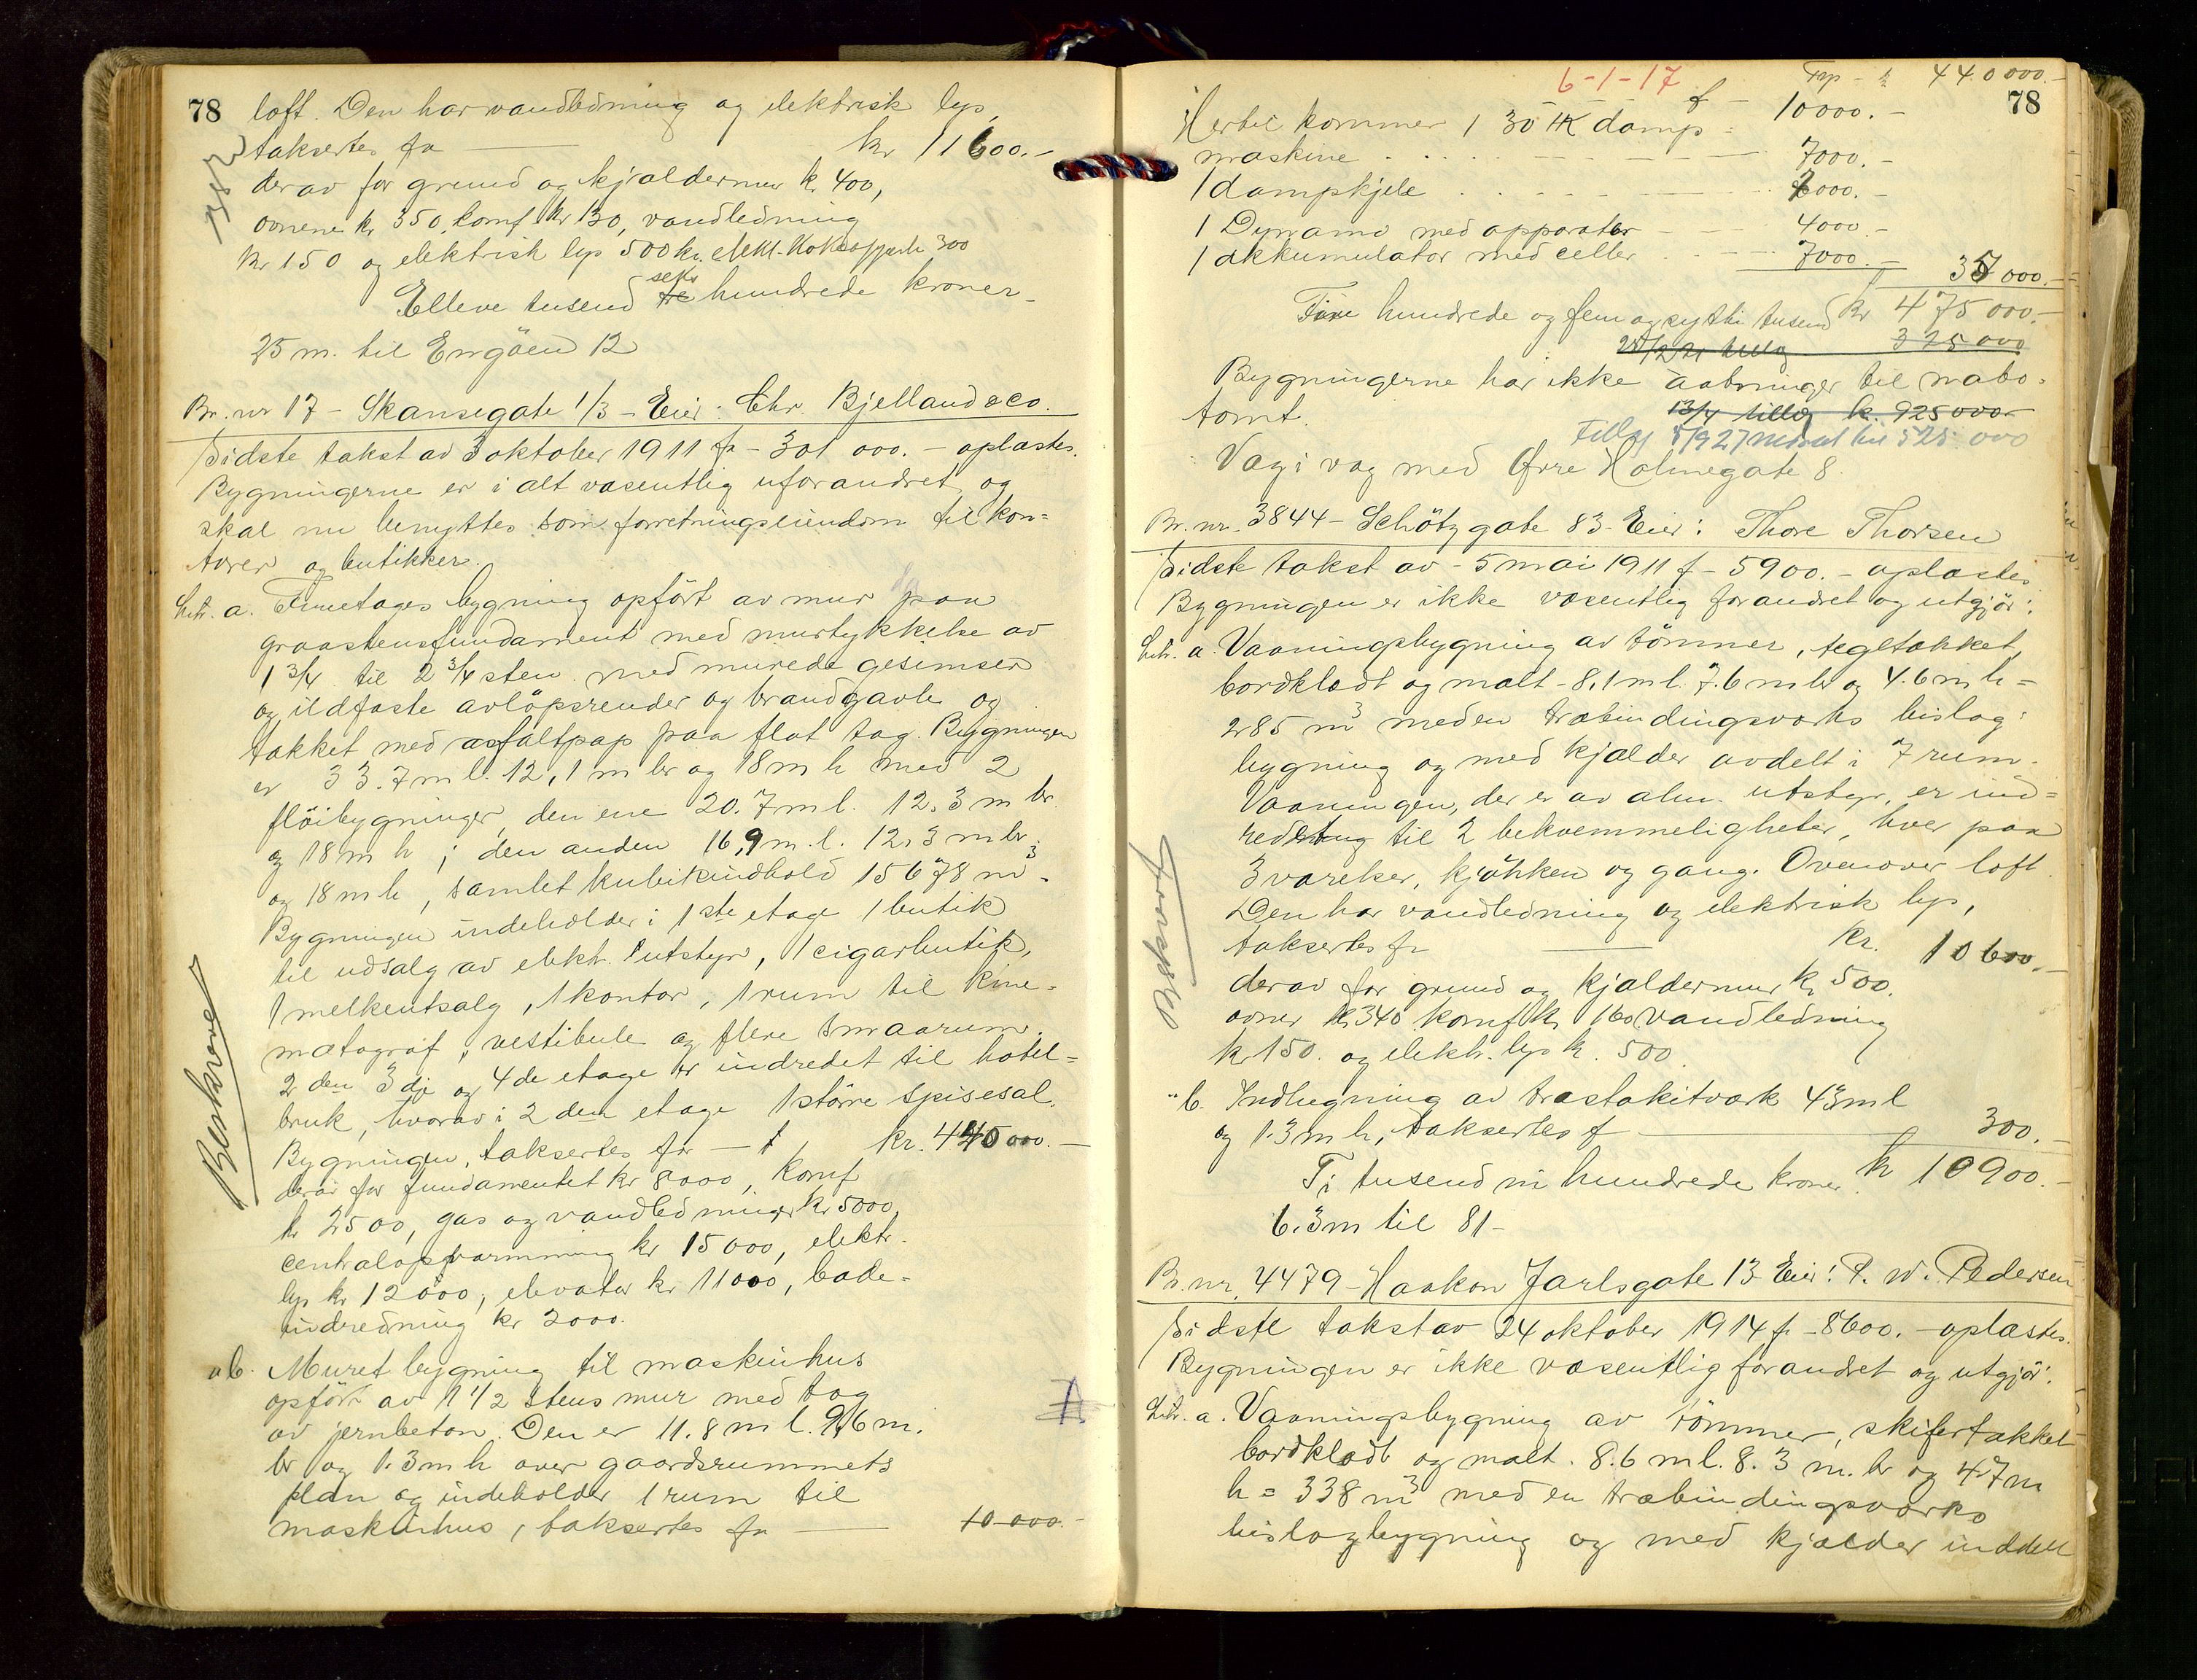 78
loft. Den har vandledning og elektrisk lys,
taksertes fr kr 11600.-
derav for grund og kjældermur kr. 400,
ovnene kr 350, komf. kr 130, vandledning
kr 150 og elektrisk lys 500 kr. elekt. Kokeapparh 300
Elleve tusend seks hundrede kroner-
25 m. til Engöen 12
Br. nr 17 - Skansegate 1/3 - Eier: Chr. Bjelland & co.
Sidste takst av 3 oktober 1911 fr - 301 000. - oplæstes.
Bygningerne er i alt væsentlig uforandret og
skal nu benyttes som forretningseiendom til kon=
torer og butikker.
Litr. a. Fireetages bygning opført av mur paa
graastensfundament med murtykkelse av
1 3/4 til 2 3/4 sten med murede gesimser
og ildfaste avløpsrender og brandgavle og
takket med asfaltpap paa flat tag. Bygningen
er 33.7 m l. 12,1 m br og 18 m h med 2
fløibygninger, den ene 20.7 m l. 12.3 m br.
og 18 m h ; den anden 16,9 m. l. 12,3 m br.
og 18 m h, samlet kubikindhold 15678 m3.
Bygningen indeholder i 1ste etage 1 butik
til udsalg av elekt. utstyr, 1 cigarbutik,
1 melkeutsalg, 1 kontor, 1 rum til kine=
matograf, vestibule og flere smaarum.
2den 3dje og 4de etage er indredet til hotel=
bruk, hvorav i 2den etage 1 større spisesal.
Bygningen, taksertes fr - kr. 440 000.-
derav for fundamentet kr 8000, komf
kr 2500, gas og vandledninger kr 5000,
centralopvarmning kr 15000, elektr.
lys kr 12000, elevator kr 11000, bade=
indredning kr 2000.
" b. Muret bygning til maskinhus
opført av 1 1/2 stens mur med tag
av jernbeton. Den er 11.8 m l. 9,6 m.
br og 1.3 m h over gaardsrummets
plan og indeholder 1 rum til
maskinhus, taksertes fr 10 000.-
Beskrevet
6-1-17
Trp - kr 440 000.-
78
10000.-
Hertil kommer 1 30 HK damp=
maskine 7000.-
1 dampkjele 7000.-
1 Dynamo med apparater 4000.-
1 akkumulator med celler 7000.- 35 000.-
Fire hundrede og fem og sytti tusend kr 475 000.-
325 000
Bygningerne har ikke aabninger til nabo=
tomt.
13/4 tillæg k. 925000.-
Tillæg 8/9 27 nedsat til 525 000
Væg i væg med Øvre Holmegate 8.
Br. nr. 3844 - Schøtz gate 83 - Eier: Thore Thorsen
Sidste takst av - 5 mai 1911 f - 5900. - oplæstes
Bygningen er ikke væsentlig forandret og utgjør:
Litr. a. Vaaningsbygning av tømmer, tegltakket,
bordklædt og malt - 8,1 m l. 7.6 m br og 4.6 m h =
285 m3 med en træbindingsverks bislag=
bygning og med kjælder avdelt i 7 rum.
Vaaningen, der er av alm. utstyr, er ind=
redet til 2 bekvemmeligheter, hver paa
3 værelser, kjøkken og gang. Ovenover loft.
Den har vandledning og elektrisk lys,
taksertes fr kr. 10600.-
derav for grund og kjældermur kr 500.
ovner kr 340 komf kr 160 vandledning
kr 150. og elektr. lys kr. 500
" b. Indhegning av træstakitværk 43 m l
og 1.3 m h, taksertes f 300.-
Ti tusend ni hundrede kroner kr 10900.-
6.3 m til 81-
Forespørt
Br. nr. 4479 - Haakon Jarlsgate 13 Eier: P. W. Pedersen
Sidste takst av 24 oktober 1914 fr - 8600. - oplæstes.
Bygningen er ikke væsentlig forandret og utgjør:
Litr. a. Vaaningsbygning av tømmer, skifertakket
bordklædt og malt. 8.6 m l. 8.3 m. br og 4.7 m
h = 338 m3 med en træbindingsværks
bislagbygning og med kjælder inddelt